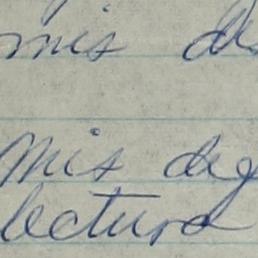 mis de
Mis deg
lectura